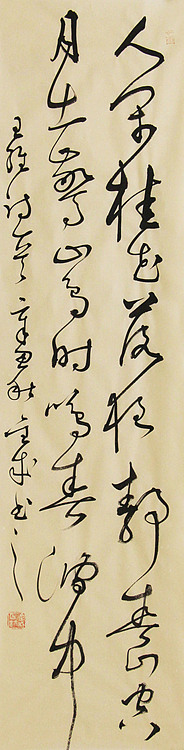 人闲桂花落夜静春山空
月出惊山鸟时鸣春涧中
王维诗一首 辛丑秋 书